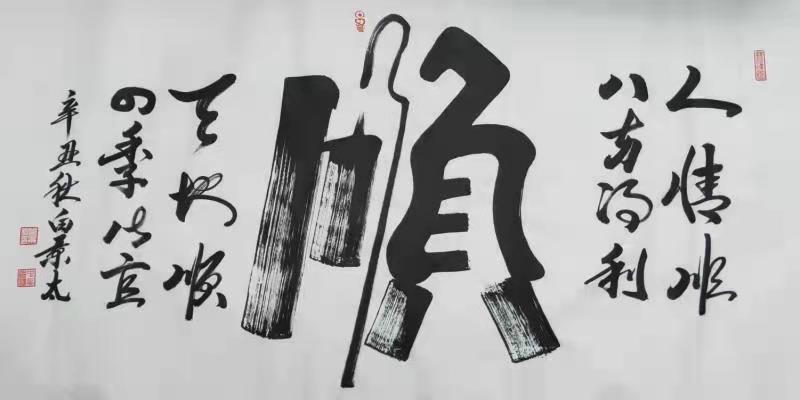 人情順
八方得利
順
天地順
四季宜
辛丑秋白景太